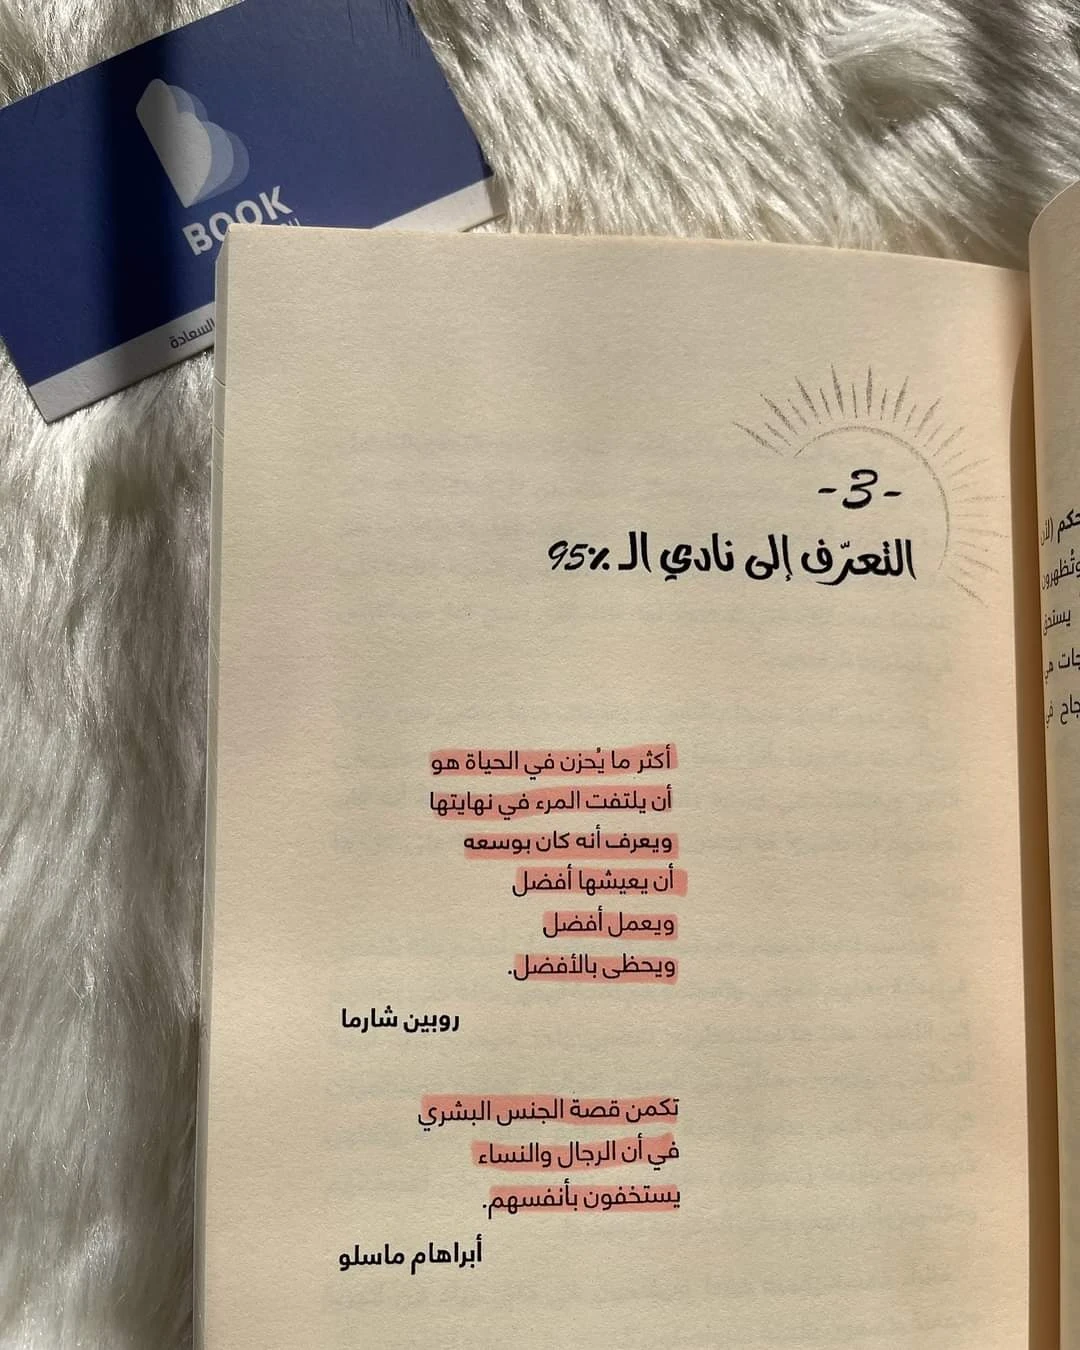 BOOK
السعادة
-3-
التعرّف إلى نادي الـ 95%
أكثر ما يُحزن في الحياة هو
أن يلتفت المرء في نهايتها
ويعرف أنه كان بوسعه
أن يعيشها أفضل
ويعمل أفضل
ويحظى بالأفضل.
روبين شارما
تكمن قصة الجنس البشري
في أن الرجال والنساء
يستخفون بأنفسهم.
أبراهام ماسلو
وتُظهرون
يستحق